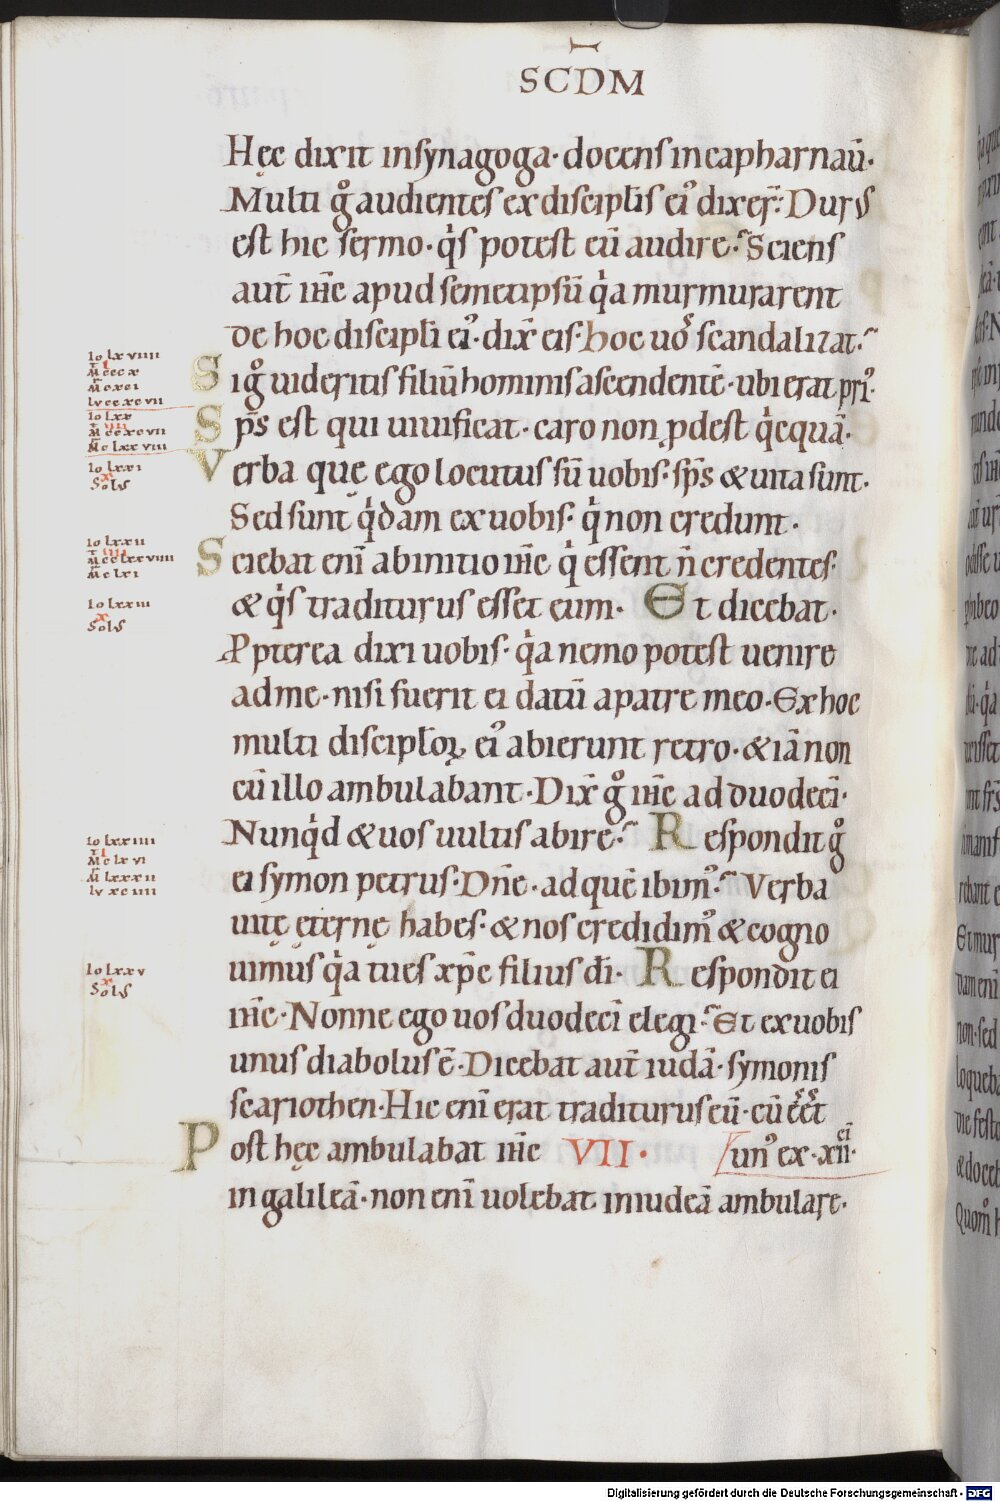 SCDM
Hęc dixit in synagoga· docens in capharnaū·
Multi gͦ audientes ex discipl̄is eiꝰ dixer̄: Durus
est hic sermo· qͥs potest eū audire? Sciens
aut̄ ih̄c apud semetipsū qͥa murmurarent
de hoc discipl̄i eiꝰ· dix̄ eis· hoc uoˢ scandalizat?
Si gͦ uideritis filiū hominis ascendentē· ubi erat priꝰ·
Sp̄s est qui uiuificat· caro non ꝓdest qͥcquā·
Verba quę ego locutus sū uobis· sp̄s & uita sunt·
Sed sunt qͥdam ex uobis· qͥ non credunt·
Sciebat enī ab initio ih̄c qͥ essent n̄ credentes·
& qͥs traditurus esset eum· Et dicebat·
Ꝓpterea dixi uobis· qͥa nemo potest uenire
ad me· nisi fuerit ei datū a patre meo· Ex hoc
multi discipl̄oꝝ eiꝰ abierunt retro· & iā non
cū illo ambulabant· Dix̄ gͦ ih̄c ad duodecī·
Nunqͥd & uos uultis abire? Respondit gͦ
ei symon petrus· Dn̄e· ad quē ibimꝰ? Verba
uitę ęternę habes· & nos credidimꝰ & cogno
uimus qͥa tu es xp̄c filius dī· Respondit ei
ih̄c· Nonne ego uos duodecī elegi? Et ex uobis
unus diabolus ē· Dicebat aut̄ iudā· symonis
scariothen· Hic enī erat traditurus eū· cū eēt
Post hęc ambulabat ih̄c VII· unꝰ ex· xii·
in galileā· non enī uolebat in iudeā ambulare·
Io lxviiii
M ccc x
M cxci
lv ccxcvii
Io lxx
M ccxcvii
M lxxviii
Io lxxi
Solˢ
Io lxxii
M cclxxviiii
M clxi
Io lxxiii
Solˢ
Io lxxiiii
M clxvi
M lxxxii
lv xciiii
Io lxxv
Solˢ
Digitalisierung gefördert durch die Deutsche Forschungsgemeinschaft - DFG